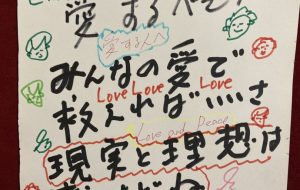 愛するべき
愛する人へ
みんなの愛で
Love Love Love
救えれば、、、、さ
Love and Peace
現実と理想は